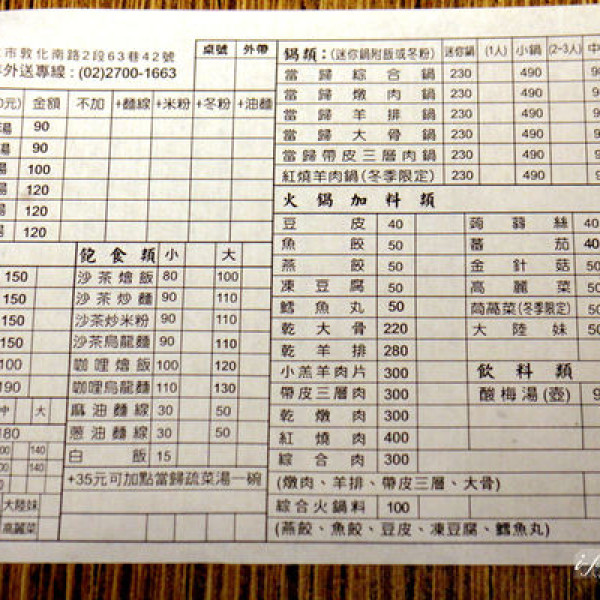 市敦化南路2段63巷42號
外送專線:(02)2700-1663
桌號 外帶
金額 不加 +麵線 +米粉 +冬粉 +油麵
湯 90
湯 90
湯 100
湯 120
湯 120
湯 120
飽食類 小 大
150 沙茶燴飯 80 100
150 沙茶炒麵 90 110
150 沙茶炒米粉 90 110
150 沙茶烏龍麵 90 110
100 咖哩燴飯 100 120
190 咖哩烏龍麵 110 130
中 大 麻油麵線 30 50
180 蔥油麵線 30 50
140 白飯 15
140 +35元可加點當歸疏菜湯一碗
大陸妹
高麗菜
鍋類:(迷你鍋附飯或冬粉) 迷你鍋 (1人) 小鍋 (2~3人) 中
當歸綜合鍋 230 490
當歸燉肉鍋 230 490
當歸羊排鍋 230 490
當歸大骨鍋 230 490
當歸帶皮三層肉鍋 230 490
紅燒羊肉鍋(冬季限定) 230 490
火鍋加料類
豆皮 40 蒟蒻絲 40
魚餃 50 蕃茄 40
燕餃 50 金針菇 50
凍豆腐 50 高麗菜 50
鱈魚丸 50 茼萵菜(冬季限定) 50
乾大骨 220 大陸妹 50
乾羊排 280
小羔羊肉片 300 飲料類
帶皮三層肉 300 酸梅湯(壺)
乾燉肉 300
紅燒肉 400
綜合肉 300
(燉肉、羊排、帶皮三層、大骨)
綜合火鍋料 100
(燕餃、魚餃、豆皮、凍豆腐、鱈魚丸)